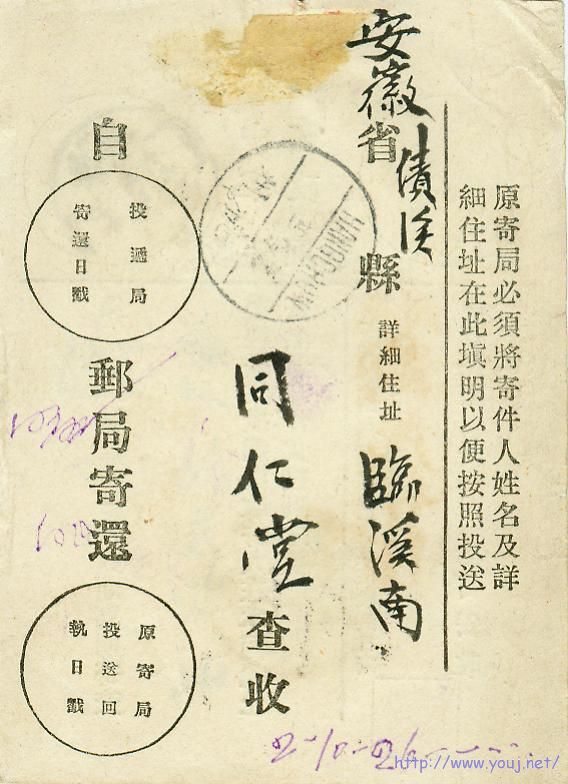 原寄局必須將寄件人姓名及詳
細住址在此填明以便按照投送
安徽省績溪縣詳細住址臨溪南
同仁堂查收
自郵局寄還
投遞局
寄還日戳
原寄局
投送回
執日戳
HANGCHOW
2-10-26
http://www.youj.net/